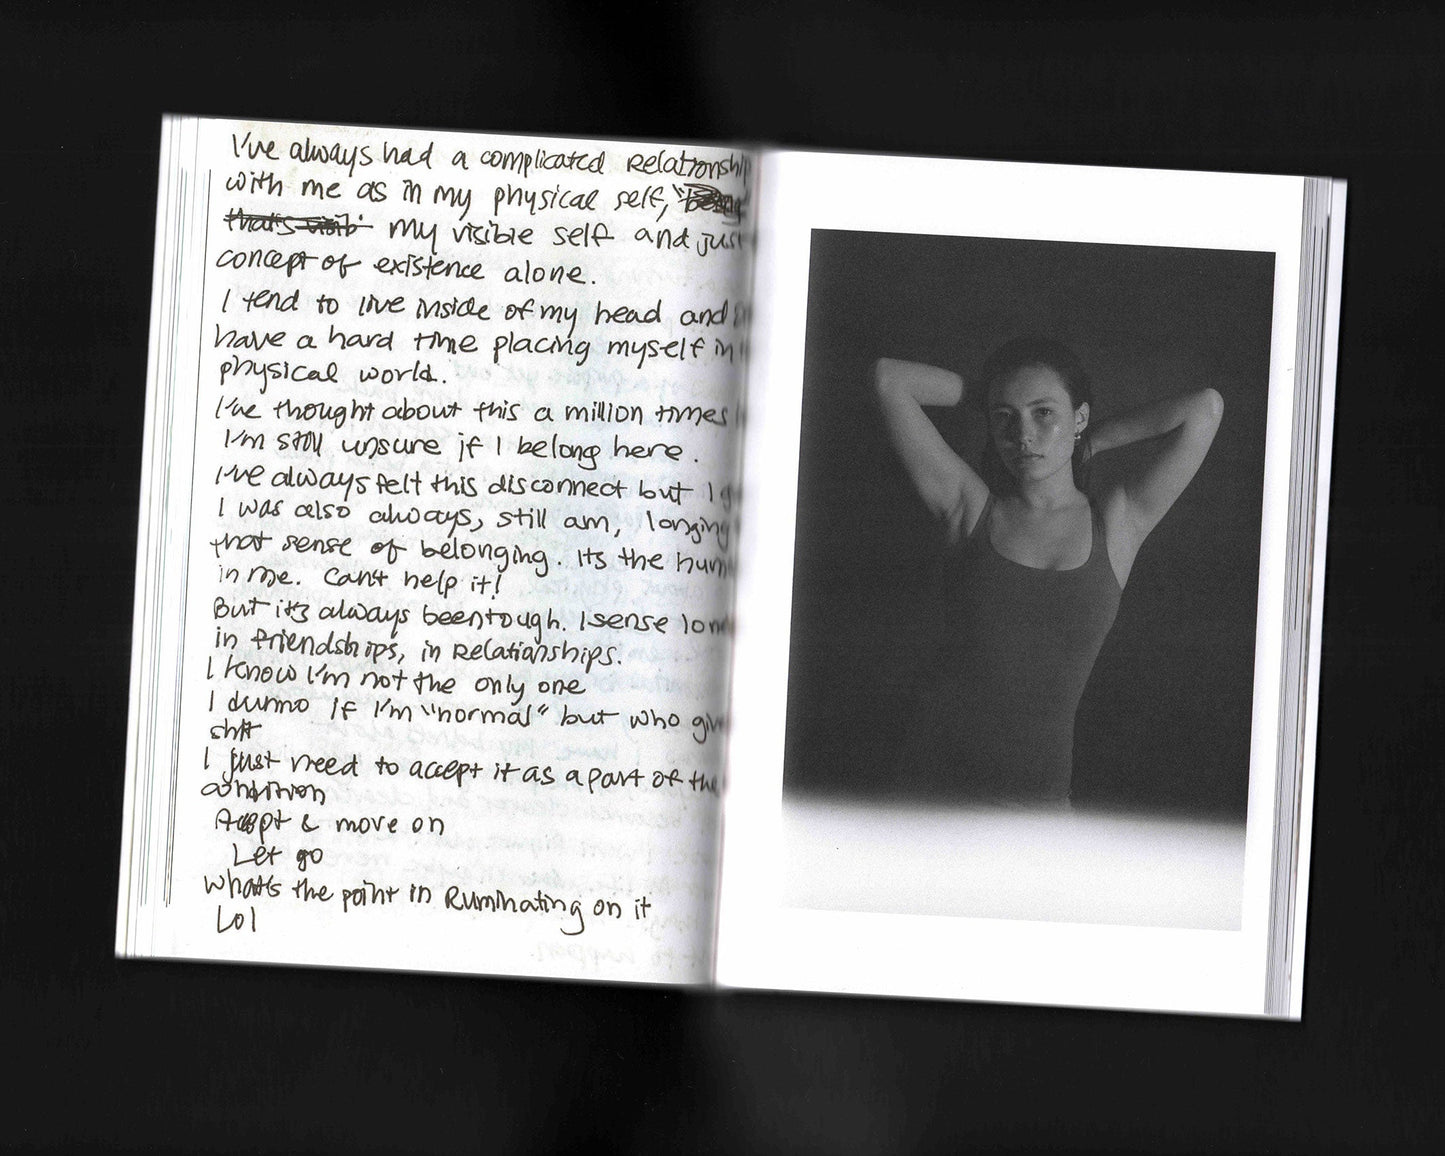 I've always had a complicated Relationship
with me as in my physical self,
that's visib my visible self and just
concept of existence alone.
I tend to live inside of my head and
have a hard time placing myself in
physical world.
I've thought about this a million times
I'm still unsure if I belong here.
I've always felt this disconnect but I
I was also always, still am, longing
that sense of belonging. Its the hum
in me. Can't help it!
But its always been tough. I sense lon
in friendships, in Relationships.
I know I'm not the only one
I dunno if I'm "normal" but who giv
shit
I just need to accept it as a part of the
condition
Accept & move on
Let go
What's the point in Ruminating on it
Lol